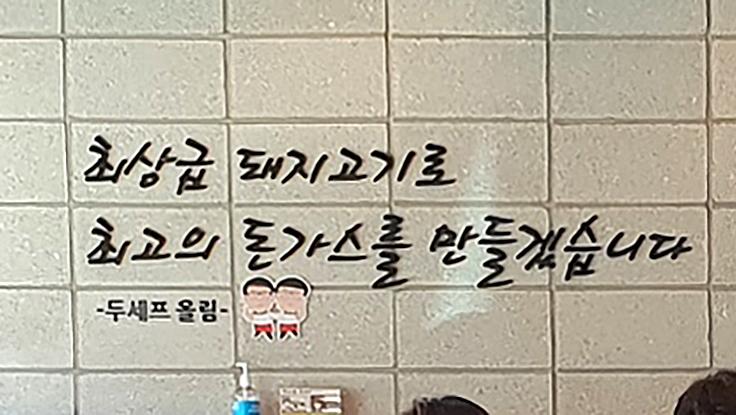 최상급 돼지고기로
최고의 돈가스를 만들겠습니다
-두셰프 올림-